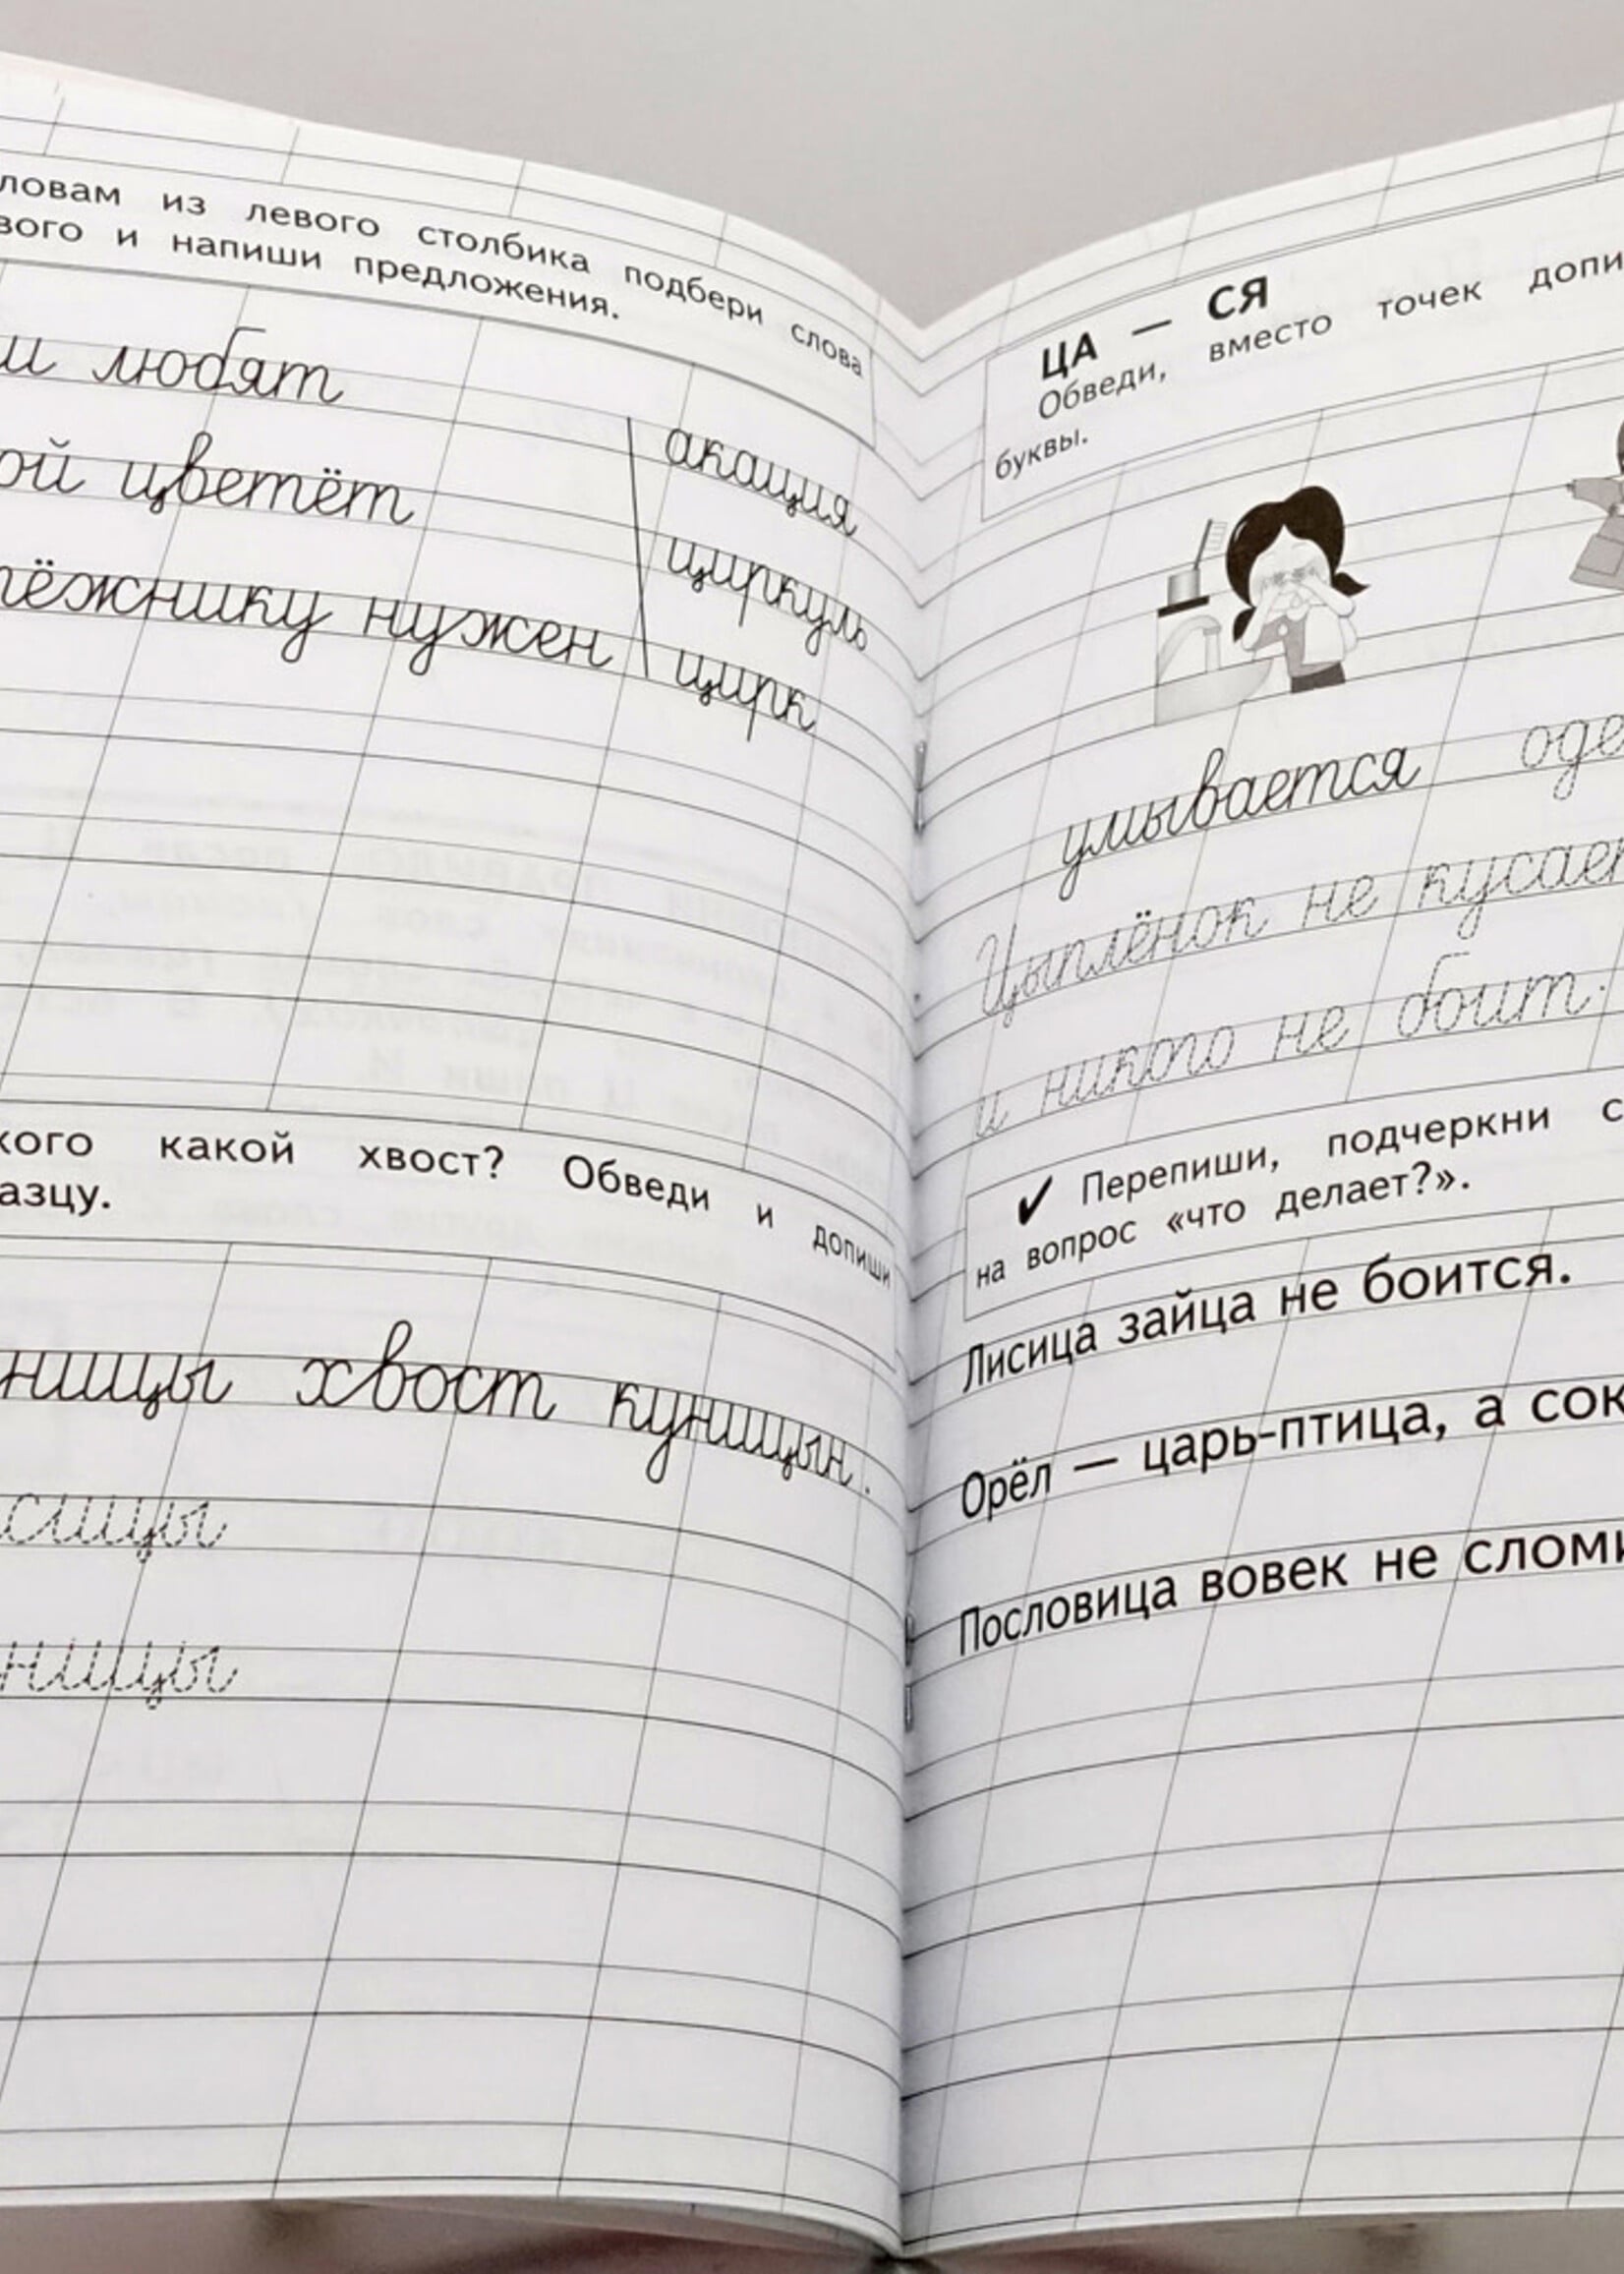 ловам из левого столбика подбери слова
вого и напиши предложения.
и любят
ой цветёт
тёжнику нужен
акация
циркуль
цирк
кого какой хвост? Обведи и допиши
азцу.
ницы хвост куницын.
сицы
ницы
ЦА — СЯ
Обведи, вместо точек допи
буквы.
умывается оде
Цыплёнок не кусает
и никого не боит.
✓ Перепиши, подчеркни с
на вопрос «что делает?».
Лисица зайца не боится.
Орёл — царь-птица, а сок
Пословица вовек не сломи